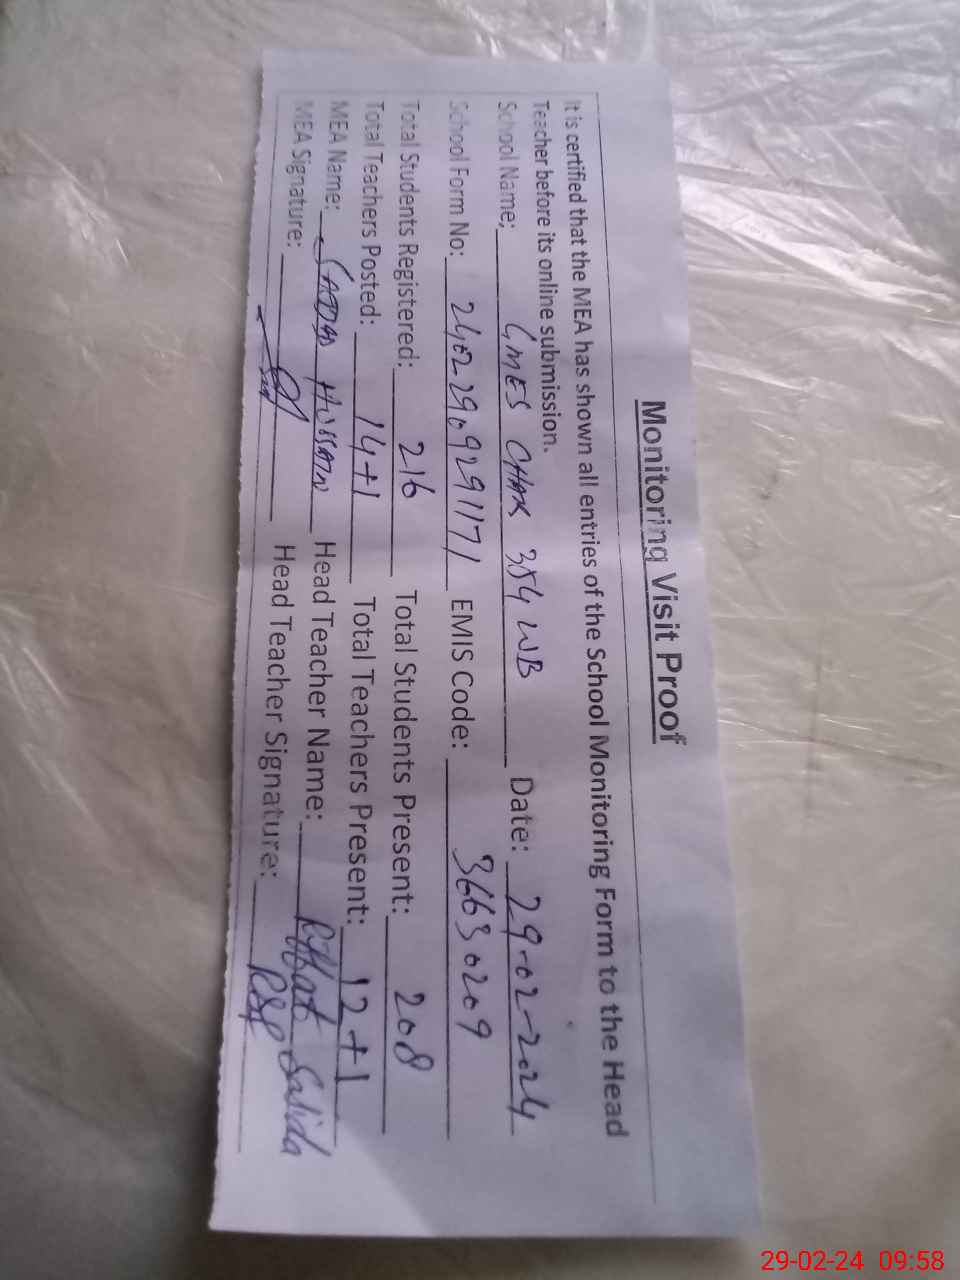 Monitoring Visit Proof
It is certified that the MEA has shown all entries of the School Monitoring Form to the Head
Teacher before its online submission.
School Name; GMES CHAK 354 WB Date: 29-02-2024
School Form No: 24022909291171 EMIS Code: 36630209
Total Students Registered: 216 Total Students Present: 208
Total Teachers Posted: 14+1 Total Teachers Present: 12+1
MEA Name: HUSSAIN Head Teacher Name: Riffat Sajida
MEA Signature: Head Teacher Signature:
29-02-24 09:58